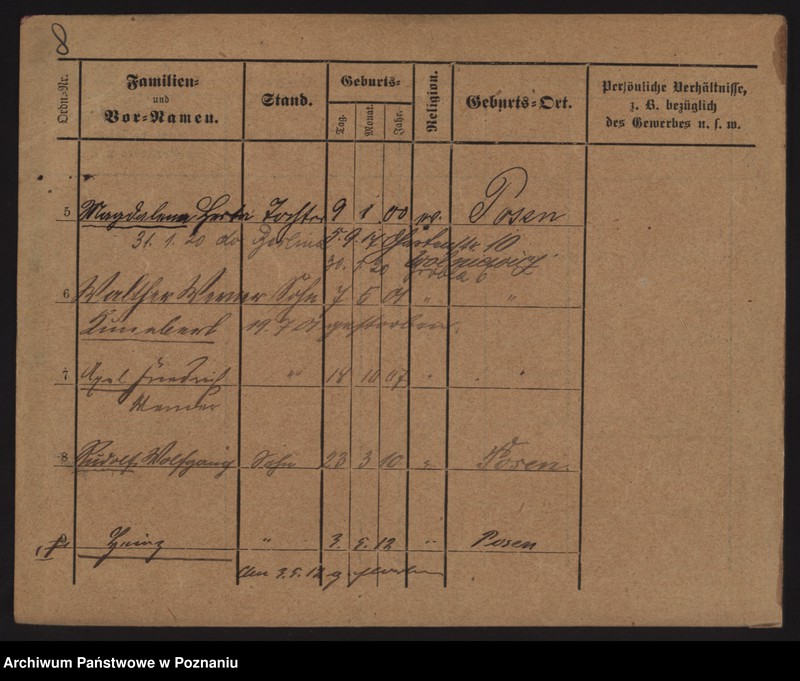 8
Ordn.-Nr.
Familien-
und
Vor-Namen.
Stand.
Geburts-
Tag.
Monat.
Jahr.
Religion.
Geburts-Ort.
Persönliche Verhältnisse,
z. B. bezüglich
des Gewerbes u. s. w.
5 Magdalena Herta Tochter 9 1 00 ev. Posen
31. 1. 20 do Berlin 5. 9. 17 10
30. 20 6
6 Walther Werner Sohn 7 5 01 " "
Kunibert 19. 7 01 gestorben.
7 Axel Friedrich " 18 10 07 " "
Werner
8 Rudolf Wolfgang Sohn 23 3 10 " Posen.
Heinz " 3. 5. 12 " Posen
Am 3. 5. 12 gestorben
Archiwum Państwowe w Poznaniu